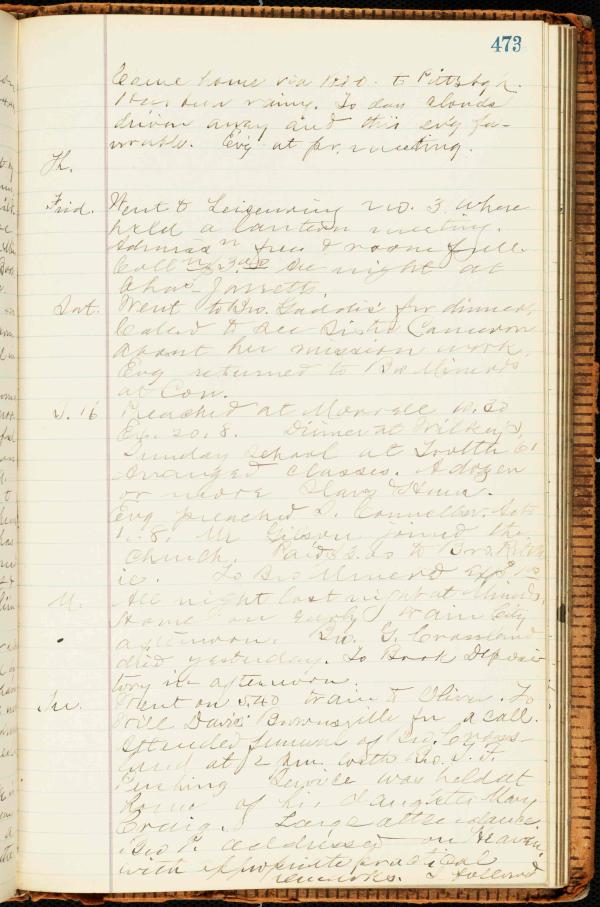 473
Came home via to Pittsbgh.
Has been rainy. To day clouds
driven away and this evg fa-
vorable. Evg at pr. meeting.
Th.
Frid. Went to Leisenring No. 3 where
held a lantern meeting.
free & room full.
Coll the night at
Chas Jarretts.
Sat. Went to Bro. Gaddis' for dinner,
Called to see Sister Cameron
about her mission work.
Evg returned to Bro Minerds
at Con.
S. 16 Preached at Morrell 10.30
Ex. 20.8. Dinner at Wilkey's,
Sunday School at Trotter &
arranged classes. A dozen
or more Slavs & Huns.
Evg preached S. Connellsv. Acts
1.8. Mr Gibson joined the
church. Paid to Bro.
To Bro Minerd
M. All night last night at Minerds.
Home on early train City
afternoon. Bro. G. Crossland
died yesterday. To Book Deposi-
tory in afternoon.
Tu. Went on 5.40 train to Oliver. To
Will Davis Brownsville for a call.
Attended funeral of Bro. Cross-
land at 2 P.m. with Bro. J. F.
Service was held at
home of his daughter Mary
Craig. Large attendance.
Bro P. addressed on Heaven
with appropriate practical
remarks. I followed